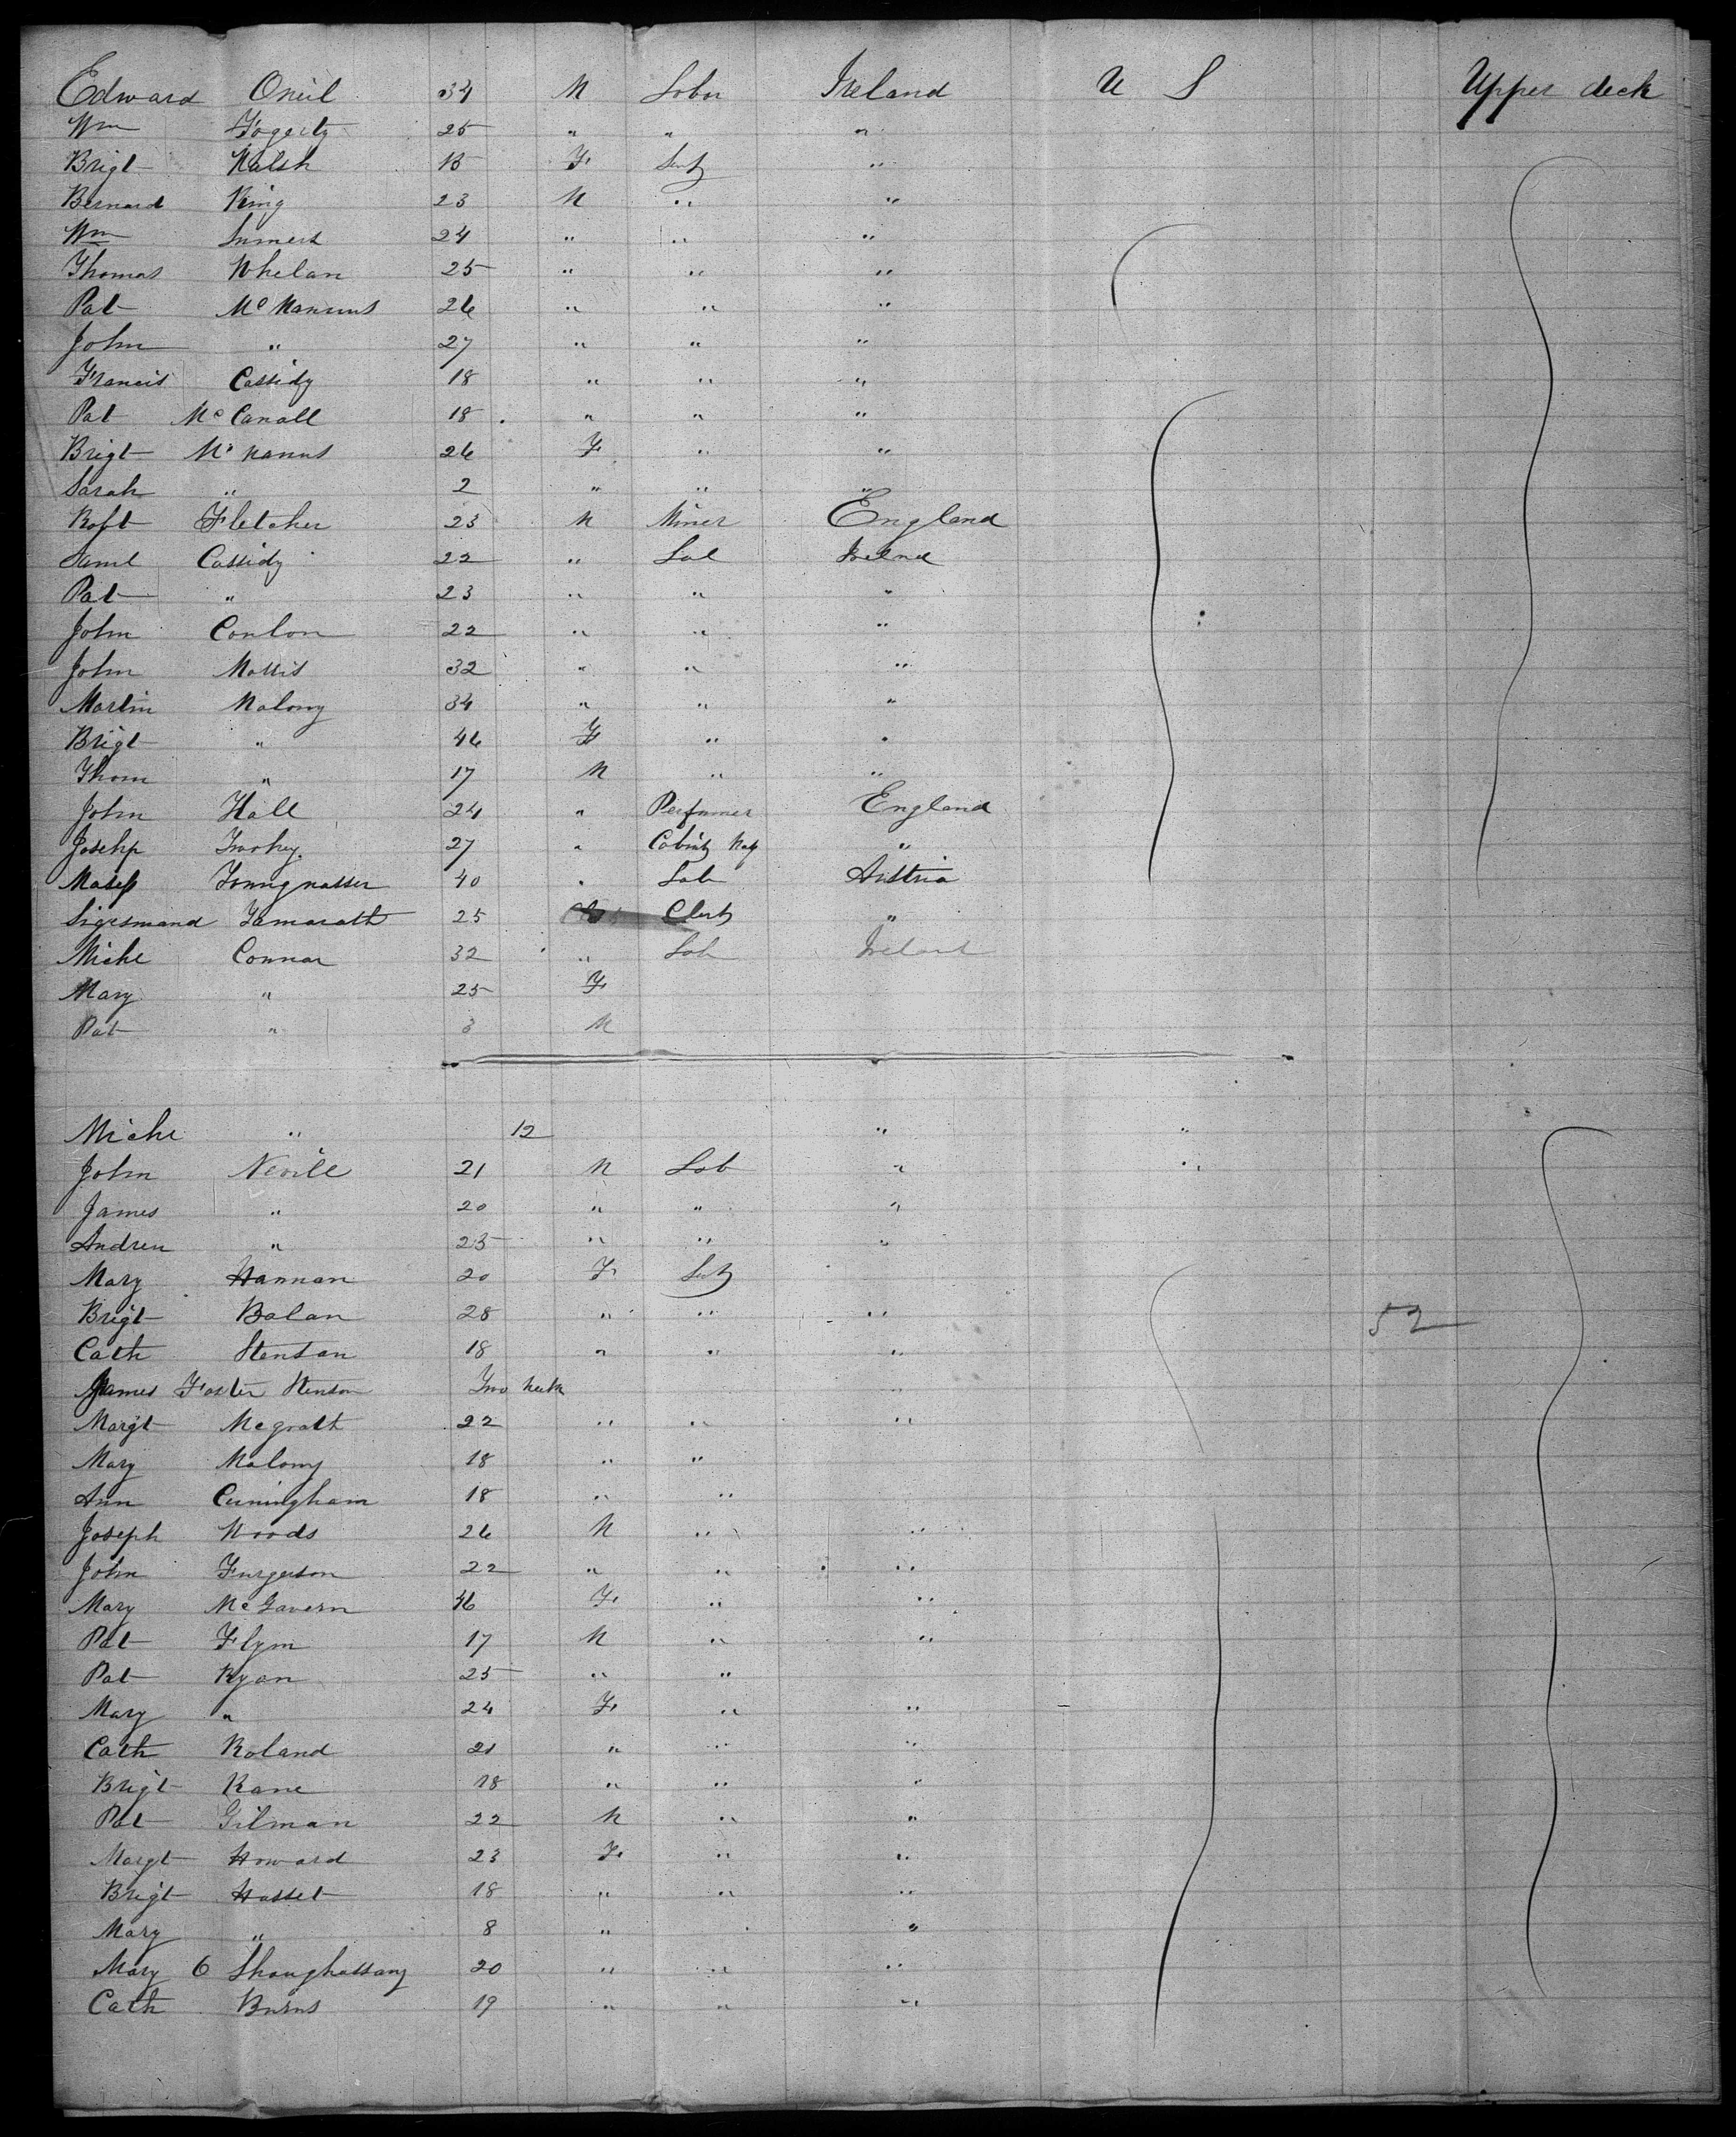 Edward Oneil 34 M Labr Ireland U S Upper deck
Wm Fogerty 25 " " "
Brigt Walsh 18 F Servt "
Bernard King 23 M " "
Wm 24 " " "
Thomas Whelan 25 " " "
Pat Mc Manus 26 " " "
John " 27 " " "
Francis Cassidy 18 " " "
Pat Mc Canall 18 " " "
Brigt Mc Manus 26 F " "
Sarah " 2 " " "
Robt Fletcher 23 M Miner England
Saml Cassidy 22 " Lab Irelnd
Pat " 23 " " "
John Conlon 22 " " "
John Morris 32 " " "
Martin Malony 34 " " "
Brigt " 46 F " "
Thom " 17 M " "
John Hall 24 " Perfumer England
Josehp 27 " "
40 " Lab Austria
Sigesmand 25 Clerk "
Michl Connor 32 " Lab Ireland
Mary " 25 F
Pat " 3 M
Michl " 12 " "
John Nevill 21 M Lab " "
James " 20 " " "
Andrew " 23 " " "
Mary Hannan 20 F Servt
Brigt Bolan 28 " " " 52
Cath Stenson 18 " " "
James Foster Stenson Two week
Margt Mcgrath 22 " " "
Mary Malony 18 " "
Ann Cuningham 18 " "
Joseph Woods 26 M " "
John Furgerson 22 " " "
Mary Mc Gavern 46 F " "
Pat Flynn 17 M " "
Pat Ryan 25 " "
Mary " 24 F " "
Cath Roland 21 " " "
Brigt Kane 18 " " "
Pat Gilman 22 M " "
Margt Howard 23 F " "
Brigt Hasset 18 " " "
Mary " 8 " "
Mary O Shaughassany 20 " " "
Cath Burns 19 " " "